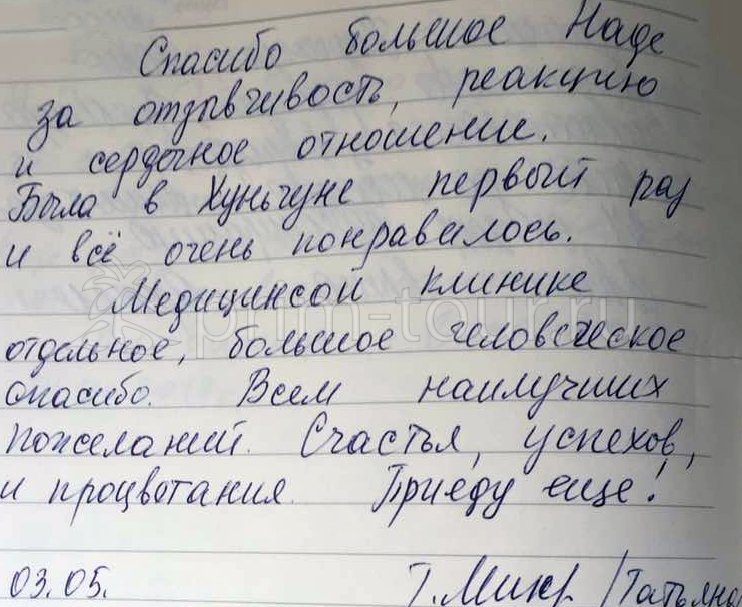 Спасибо большое Наде
за отзывчивость, реакцию
и сердечное отношение.
Была в Хуньчуне первый раз
и всё очень понравилось.
Медицинсой клинике
prim-tour.ru
отдельное, большое человеческое
спасибо. Всем наилучших
пожеланий. Счастья, успехов,
и процветания. Приеду еще!
03.05. Т. /Татьяна